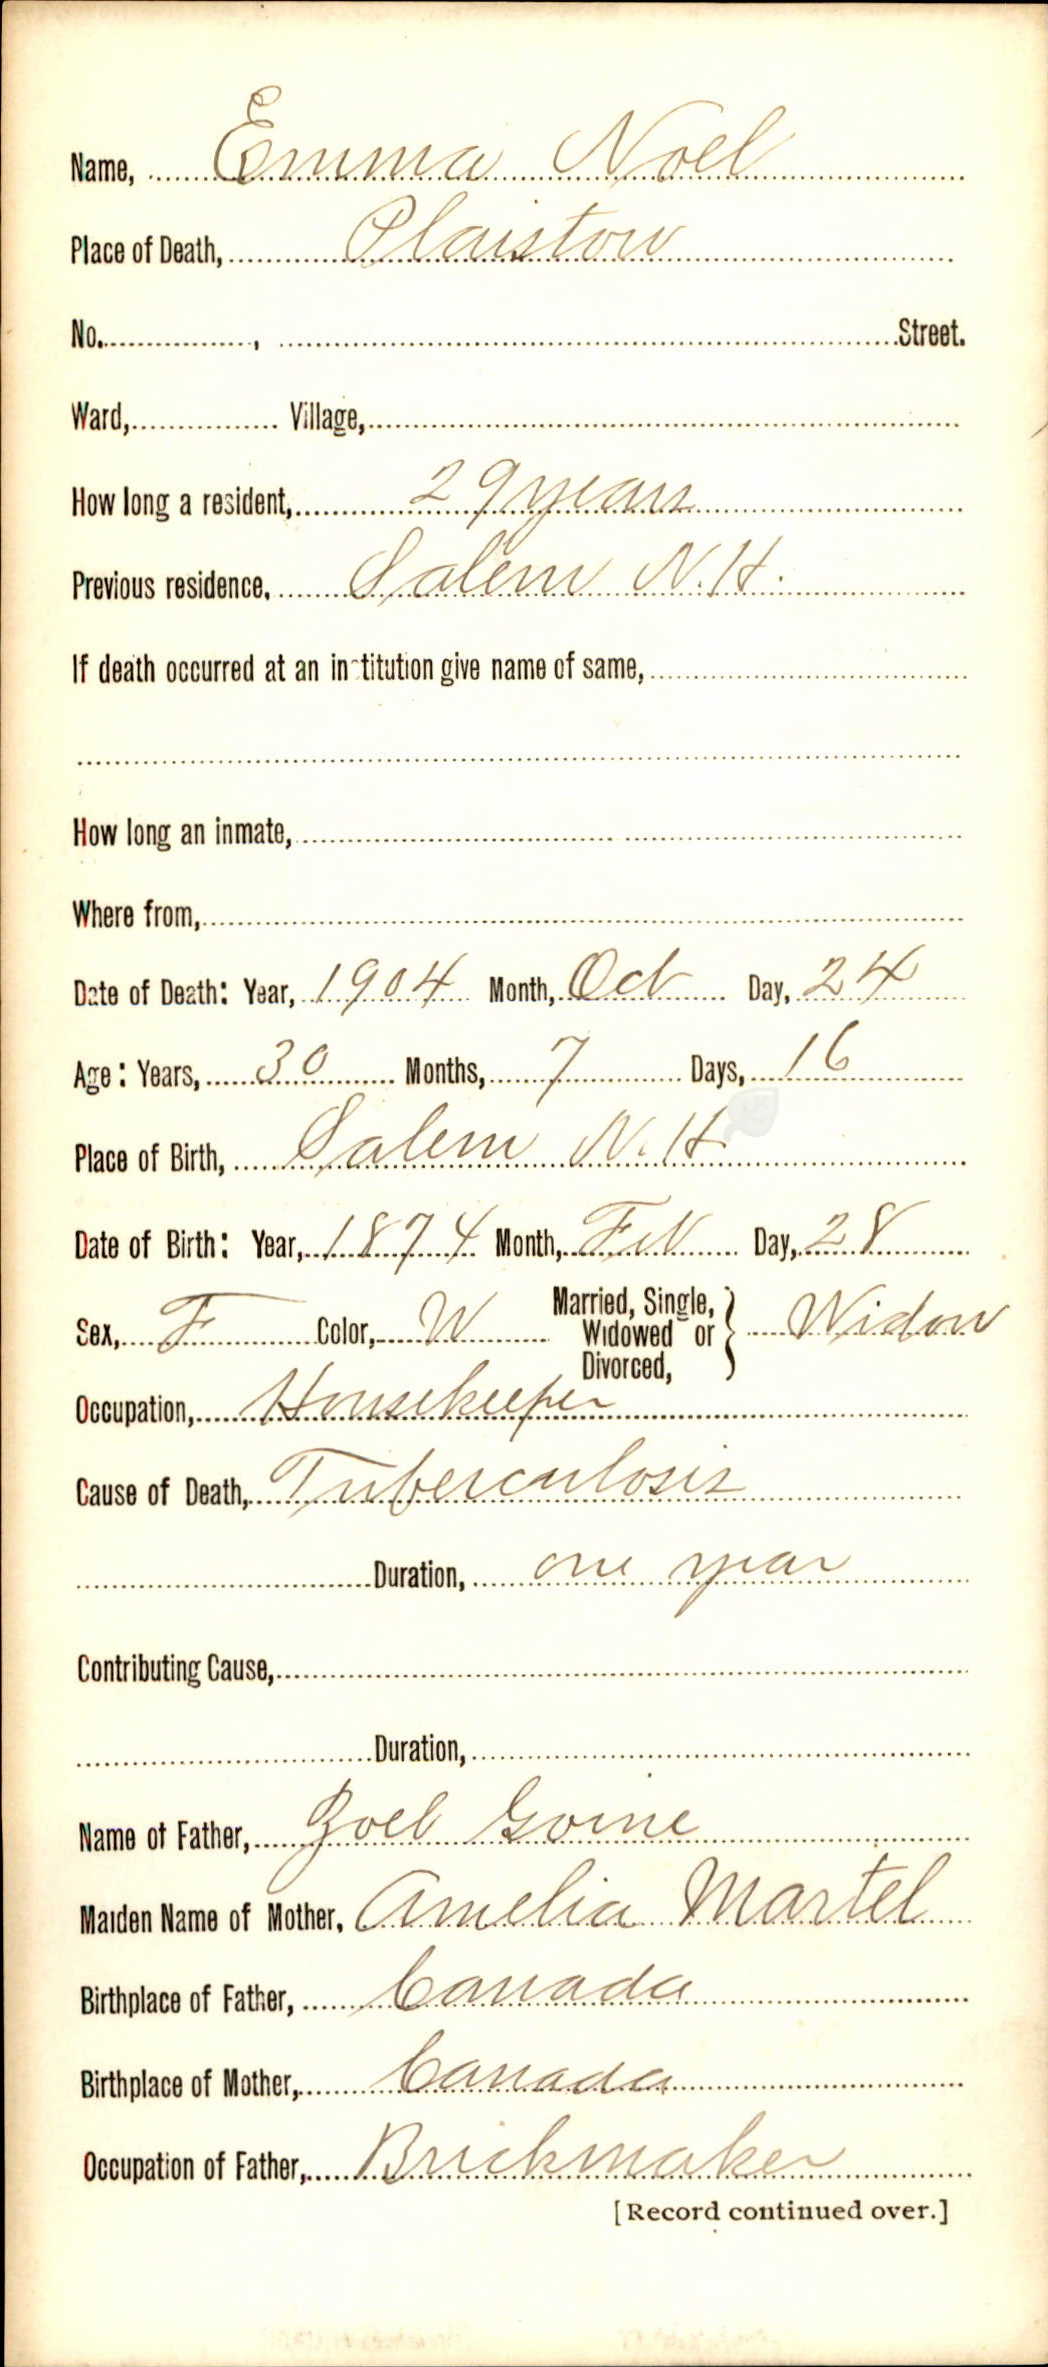 Name, Emma Noel
Place of Death, Plaistow
No. , Street.
Ward, Village,
How long a resident, 29 years
Previous residence. Salem N.H.
If death occurred at an institution give name of same,
How long an inmate,
Where from,
Date of Death: Year, 1904 Month, Oct Day, 24
Age: Years, 30 Months, 7 Days, 16
Place of Birth, Salem N.H.
Date of Birth: Year, 1874 Month, Feb Day, 28
Sex, F Color, W Married, Single, Widowed or Divorced, } Widow
Occupation, Housekeeper
Cause of Death, Tuberculosis
Duration, one year
Contributing Cause,
Duration,
Name of Father, Zoel Goine
Maiden Name of Mother. Amelia Martel
Birthplace of Father, Canada
Birthplace of Mother, Canada
Occupation of Father, Brickmaker
[Record continued over.]